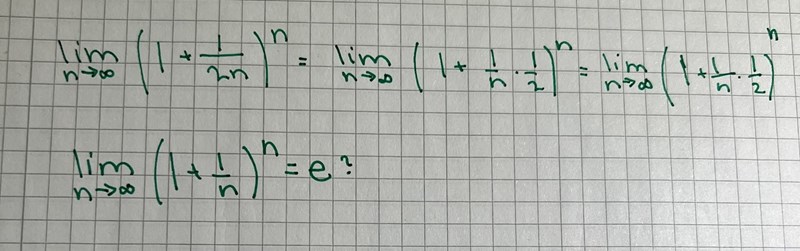 lim n→∞ (1 + 1/2n)^n = lim n→∞ (1 + 1/n · 1/2)^n = lim n→∞ (1 + 1/n · 1/2)^n
lim n→∞ (1 + 1/n)^n = e?